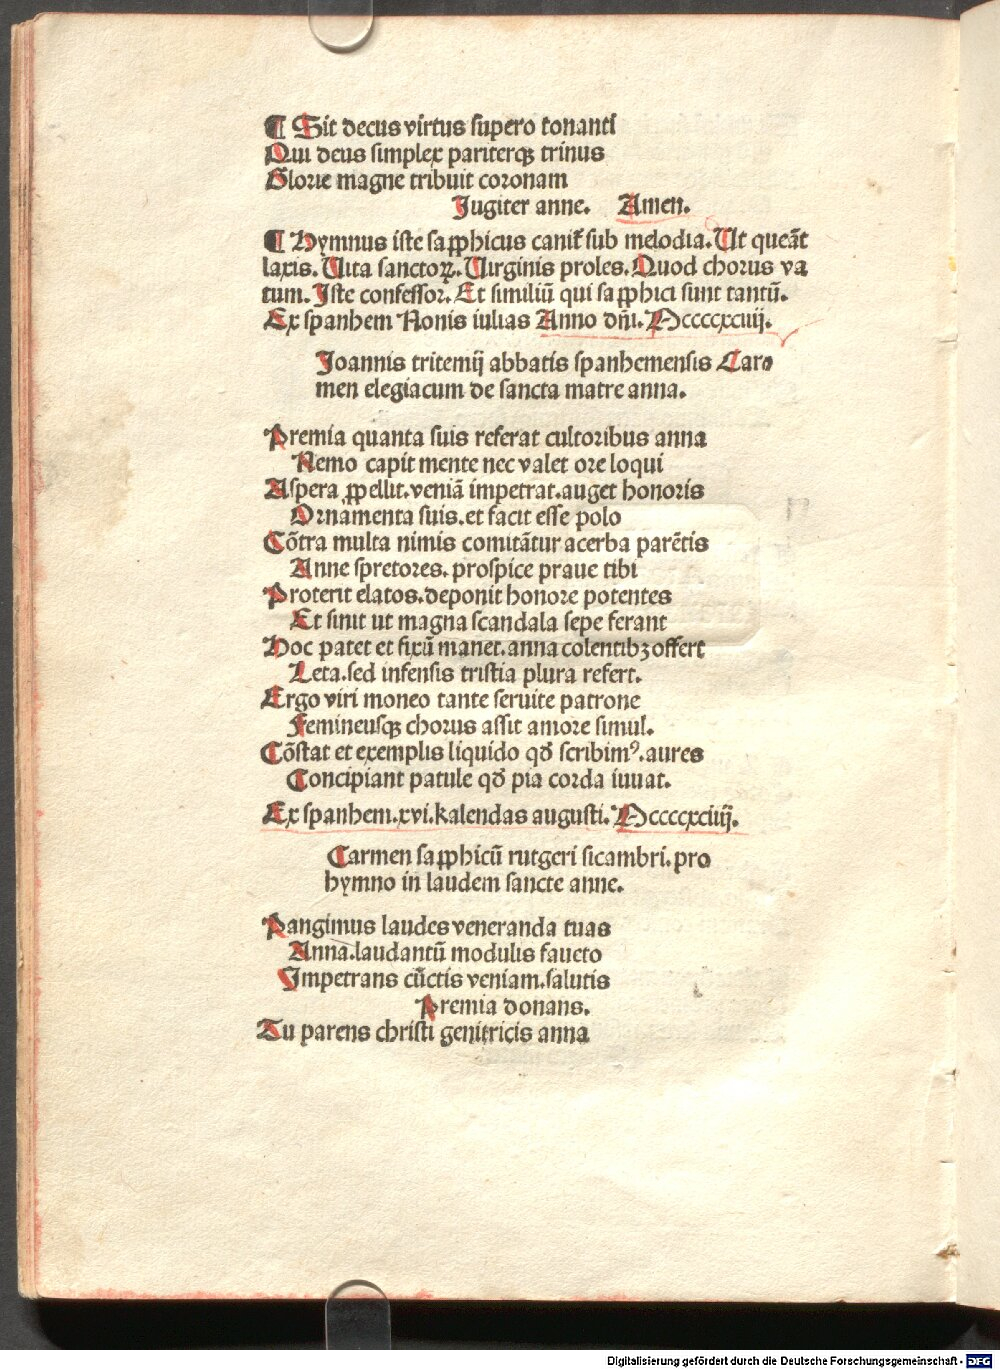 ¶ Sit decus virtus supero tonanti
Qui deus simplex pariterqꝫ trinus
Glorie magne tribuit coronam
Jugiter anne. Amen.
¶ Hymnus iste sapphicus canit᷑ sub melodia. Ut queãt
laxis. Uita sanctoꝝ. Uirginis proles. Quod chorus va
tum. Iste confessor. Et similiũ qui sapphici sunt tantũ.
Ex spanhem Nonis iulias Anno dñi. Mccccxciiij.
Joannis tritemij abbatis spanhemensis Car
men elegiacum de sancta matre anna.
Premia quanta suis referat cultoribus anna
Nemo capit mente nec valet ore loqui
Aspera ꝓpellit. veniã impetrat. auget honoris
Ornamenta suis. et facit esse polo
Cõtra multa nimis comitãtur acerba parẽtis
Anne spretores. prospice praue tibi
Proterit elatos. deponit honore potentes
Et sinit ut magna scandala sepe ferant
Hoc patet et fixũ manet. anna colentibꝫ offert
Leta. sed infensis tristia plura refert.
Ergo viri moneo tante seruite patrone
Femineusqꝫ chorus assit amore simul.
Cõstat et exemplis liquido qđ scribimꝰ. aures
Concipiant patule qđ pia corda iuuat.
Ex spanhem. xvi. kalendas augusti. Mccccxciiij.
Carmen sapphicũ rutgeri sicambri. pro
hymno in laudem sancte anne.
Pangimus laudes veneranda tuas
Anna. laudantũ modulis faueto
Impetrans cũctis veniam. salutis
Premia donans.
Tu parens christi genitricis anna
Digitalisierung gefördert durch die Deutsche Forschungsgemeinschaft - DFG